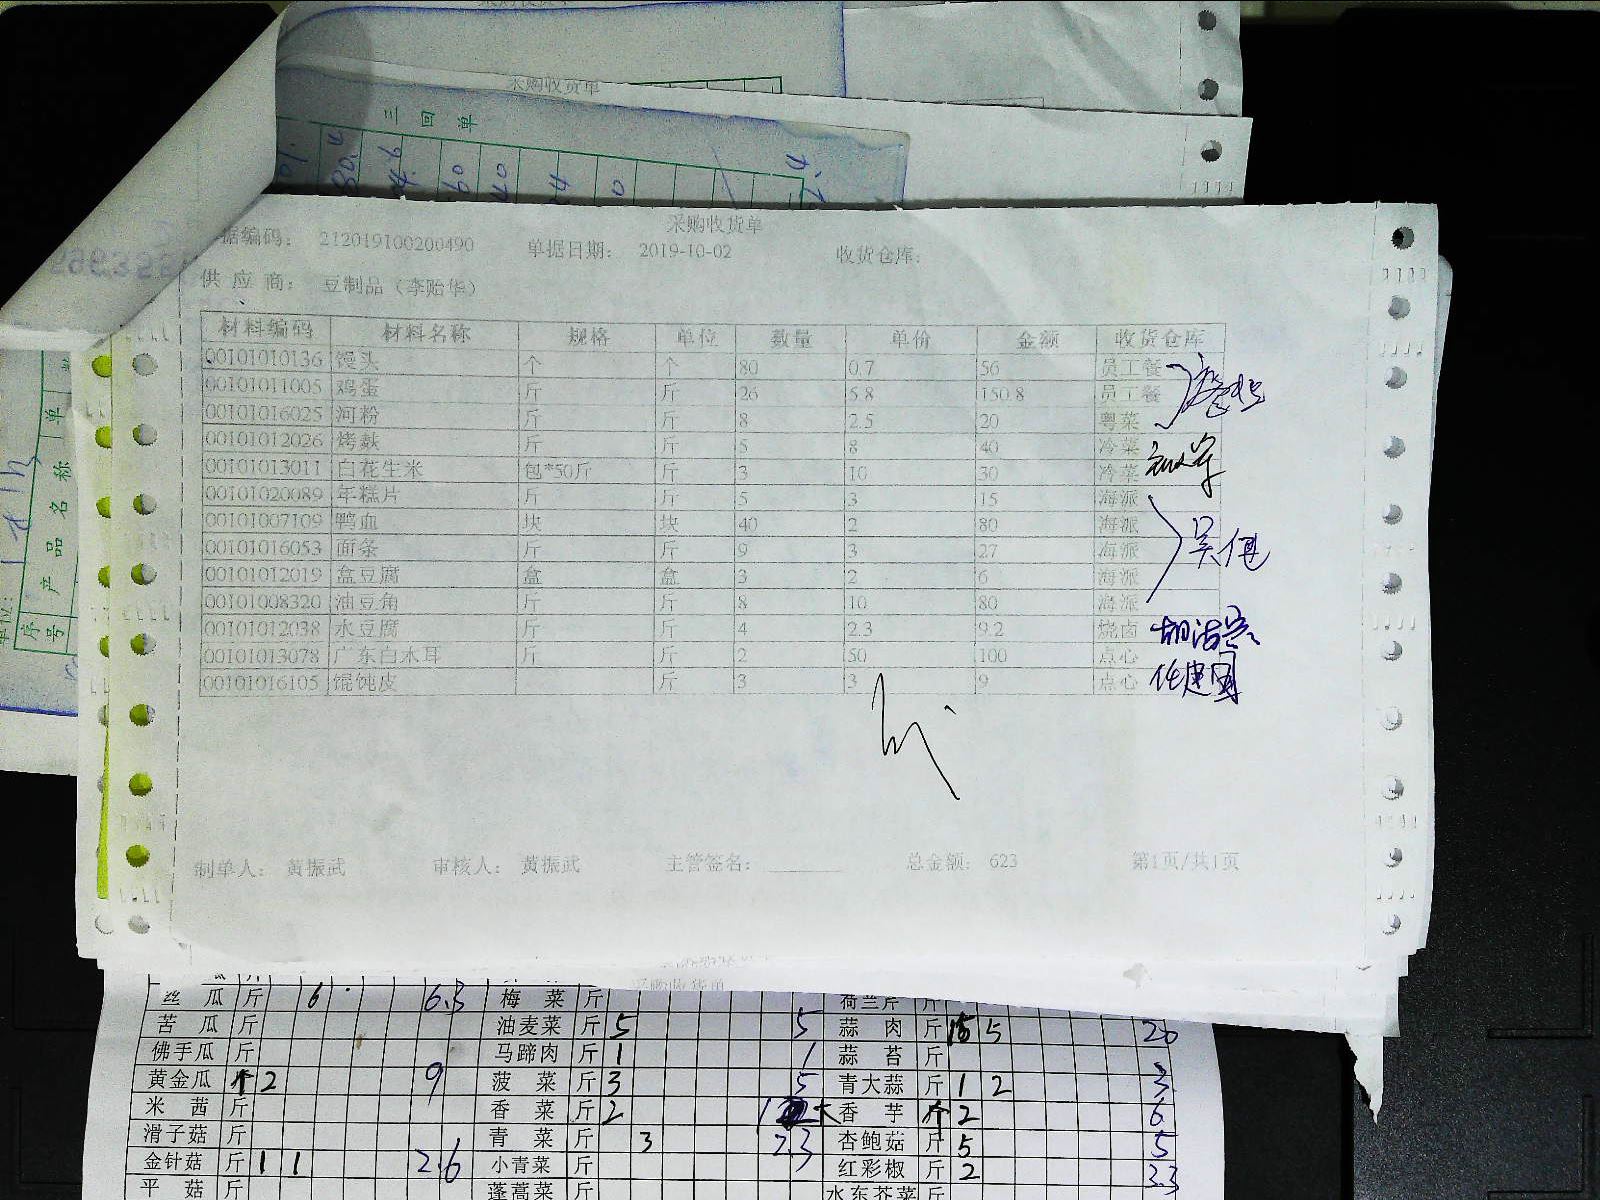 采购收货单
三 回 单
采购收货单
据编码: 212019100200490 单据日期: 2019-10-02 收货仓库:
供 应 商: 豆制品（李贻华）
材料编码 材料名称 规格 单位 数量 单价 金额 收货仓库
00101010136 馒头 个 个 80 0.7 56 员工餐
00101011005 鸡蛋 斤 斤 26 5.8 150.8 员工餐
00101016025 河粉 斤 斤 8 2.5 20 粤菜
00101012026 烤麸 斤 斤 5 8 40 冷菜
00101013011 白花生米 包*50斤 斤 3 10 30 冷菜
00101020089 年糕片 斤 斤 5 3 15 海派
00101007109 鸭血 块 块 40 2 80 海派
00101016053 面条 斤 斤 9 3 27 海派
00101012019 盒豆腐 盒 盒 3 2 6 海派
00101008320 油豆角 斤 斤 8 10 80 海派
00101012038 水豆腐 斤 斤 4 2.3 9.2 烧卤
00101013078 广东白木耳 斤 斤 2 50 100 点心
00101016105 馄饨皮 斤 3 3 9 点心
制单人: 黄振武 审核人: 黄振武 主管签名: 总金额: 623 第1页/共1页
序号 产品名称 单
采购收货单
丝 瓜 斤 6 6.3 梅 菜 斤 荷兰芹 斤
苦 瓜 斤 油麦菜 斤 5 5 蒜 肉 斤 15 5 20
佛手瓜 斤 马蹄肉 斤 1 1 蒜 苔 斤
黄金瓜 个 2 9 菠 菜 斤 3 5 青大蒜 斤 1 2 3
米 茜 斤 香 菜 斤 2 香 芋 个 2 6
滑子菇 斤 青 菜 斤 3 2.3 杏鲍菇 斤 5 5
金针菇 斤 1 1 2.6 小青菜 斤 红彩椒 斤 2 3.3
平 菇 斤 蓬蒿菜 斤 水东芥菜 斤